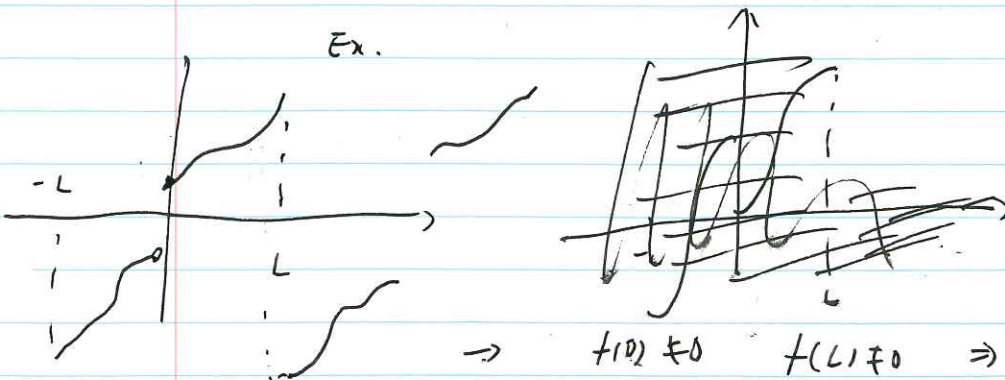 Ex.
-L
L
L
→ f(0) ≠ 0 f(L) ≠ 0 ⇒